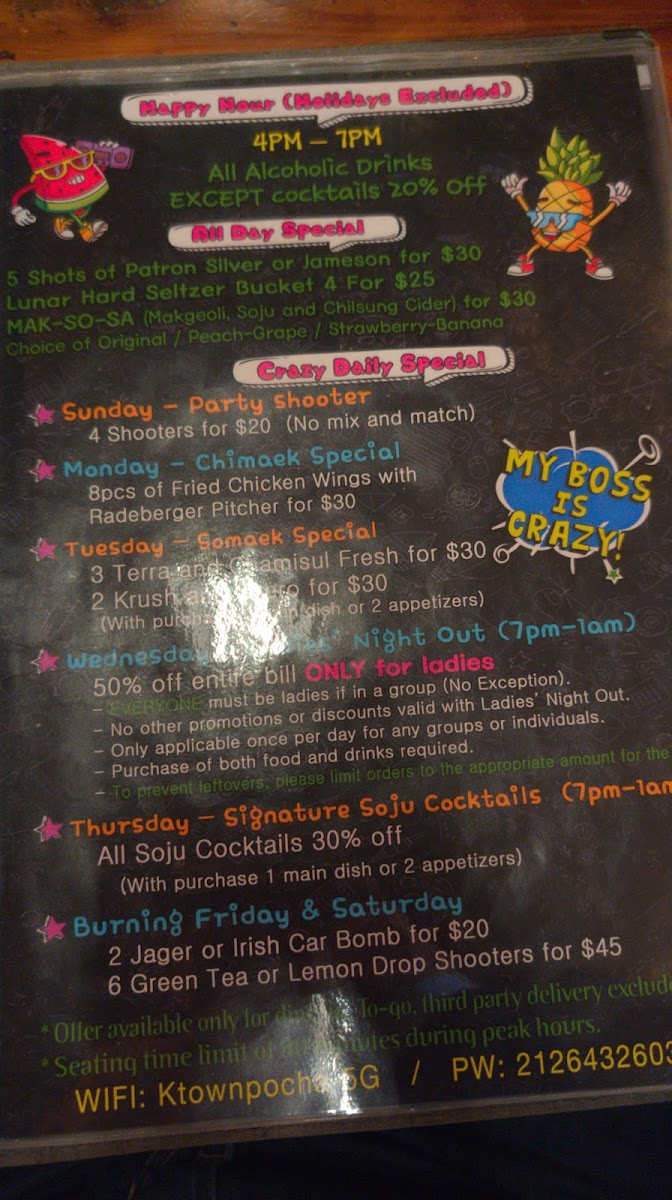 Happy Hour (Holidays Excluded)
4PM – 7PM
All Alcoholic Drinks
EXCEPT cocktails 20% off
All Day Special
5 Shots of Patron Silver or Jameson for $30
Lunar Hard Seltzer Bucket 4 For $25
MAK-SO-SA (Makgeolli, Soju and Chilsung Cider) for $30
Choice of Original / Peach-Grape / Strawberry-Banana
Crazy Daily Special
Sunday – Party Shooter
4 Shooters for $20 (No mix and match)
Monday – Chimaek Special
8pcs of Fried Chicken Wings with
Radeberger Pitcher for $30
MY BOSS
IS
CRAZY!
Tuesday – Somaek Special
3 Terra and Chamisul Fresh for $30
2 Krush for $30
(With dish or 2 appetizers)
Wednesday Ladies' Night Out (7pm-1am)
50% off entire bill ONLY for ladies
- EVERYONE must be ladies if in a group (No Exception).
- No other promotions or discounts valid with Ladies' Night Out.
- Only applicable once per day for any groups or individuals.
- Purchase of both food and drinks required.
- To prevent leftovers, please limit orders to the appropriate amount for the
Thursday – Signature Soju Cocktails (7pm-1am
All Soju Cocktails 30% off
(With purchase 1 main dish or 2 appetizers)
Burning Friday & Saturday
2 Jager or Irish Car Bomb for $20
6 Green Tea or Lemon Drop Shooters for $45
* Offer available only for To-go, third party delivery
* Seating time limit of minutes during peak hours.
WIFI: Ktownpocha 5G / PW: 2126432603